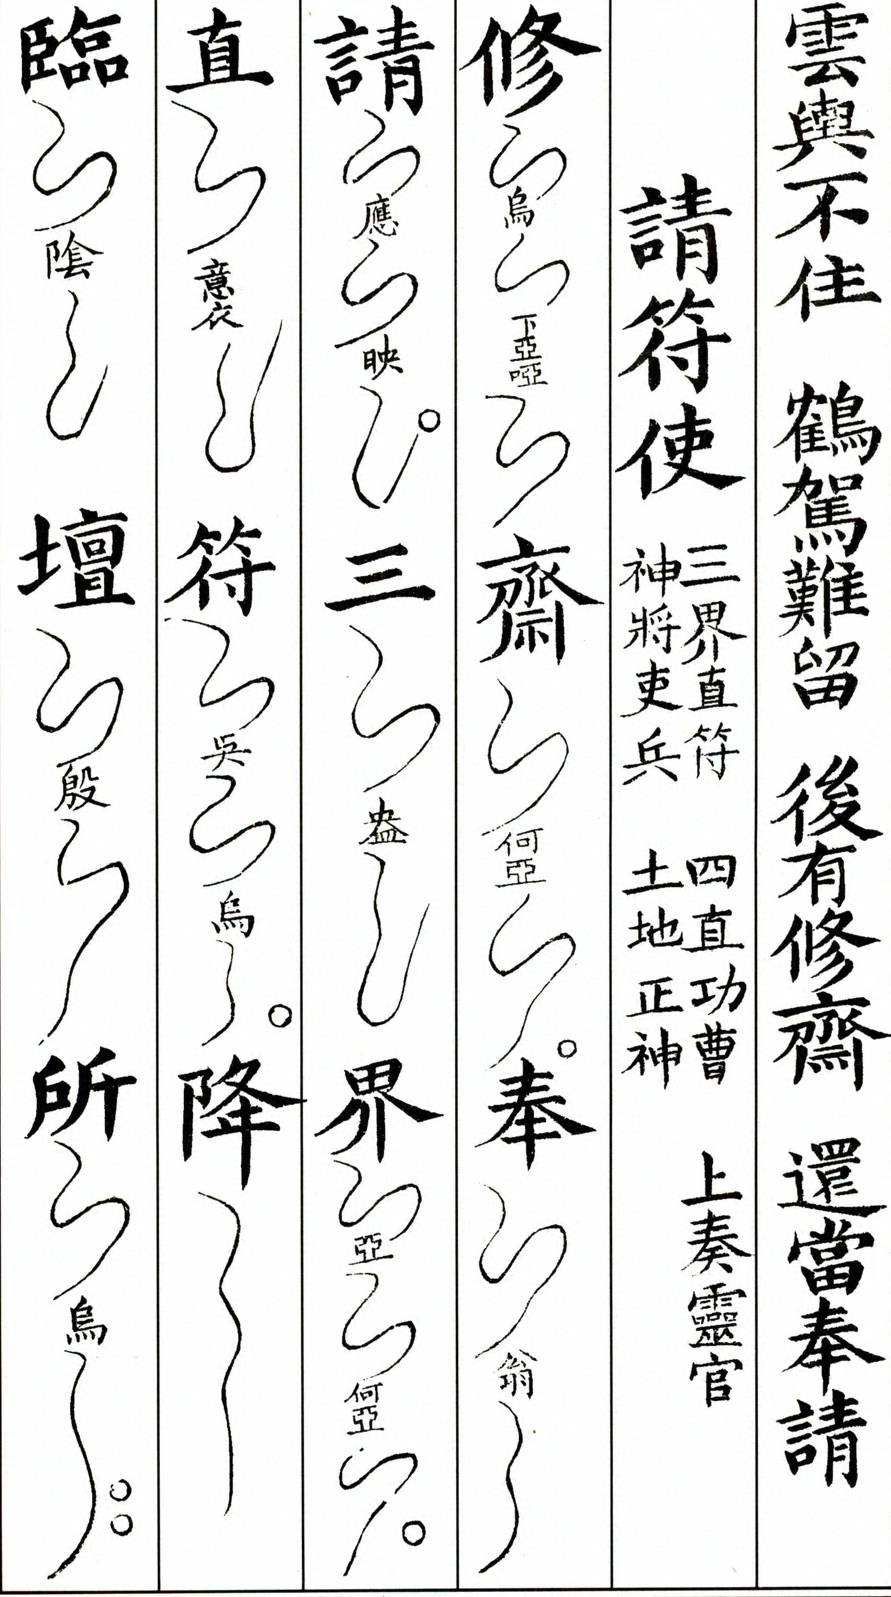 雲輿不住 鶴駕難留 後有修齋 還當奉請
請符使 三界直符 四直功曹 上奏靈官
神將吏兵 土地正神
修 烏 下亞啞 齋 何亞 奉 翁
請 應 映 三 盎 界 亞 何亞
直 意衣 符 吳 烏 降
臨 陰 壇 殷 所 烏